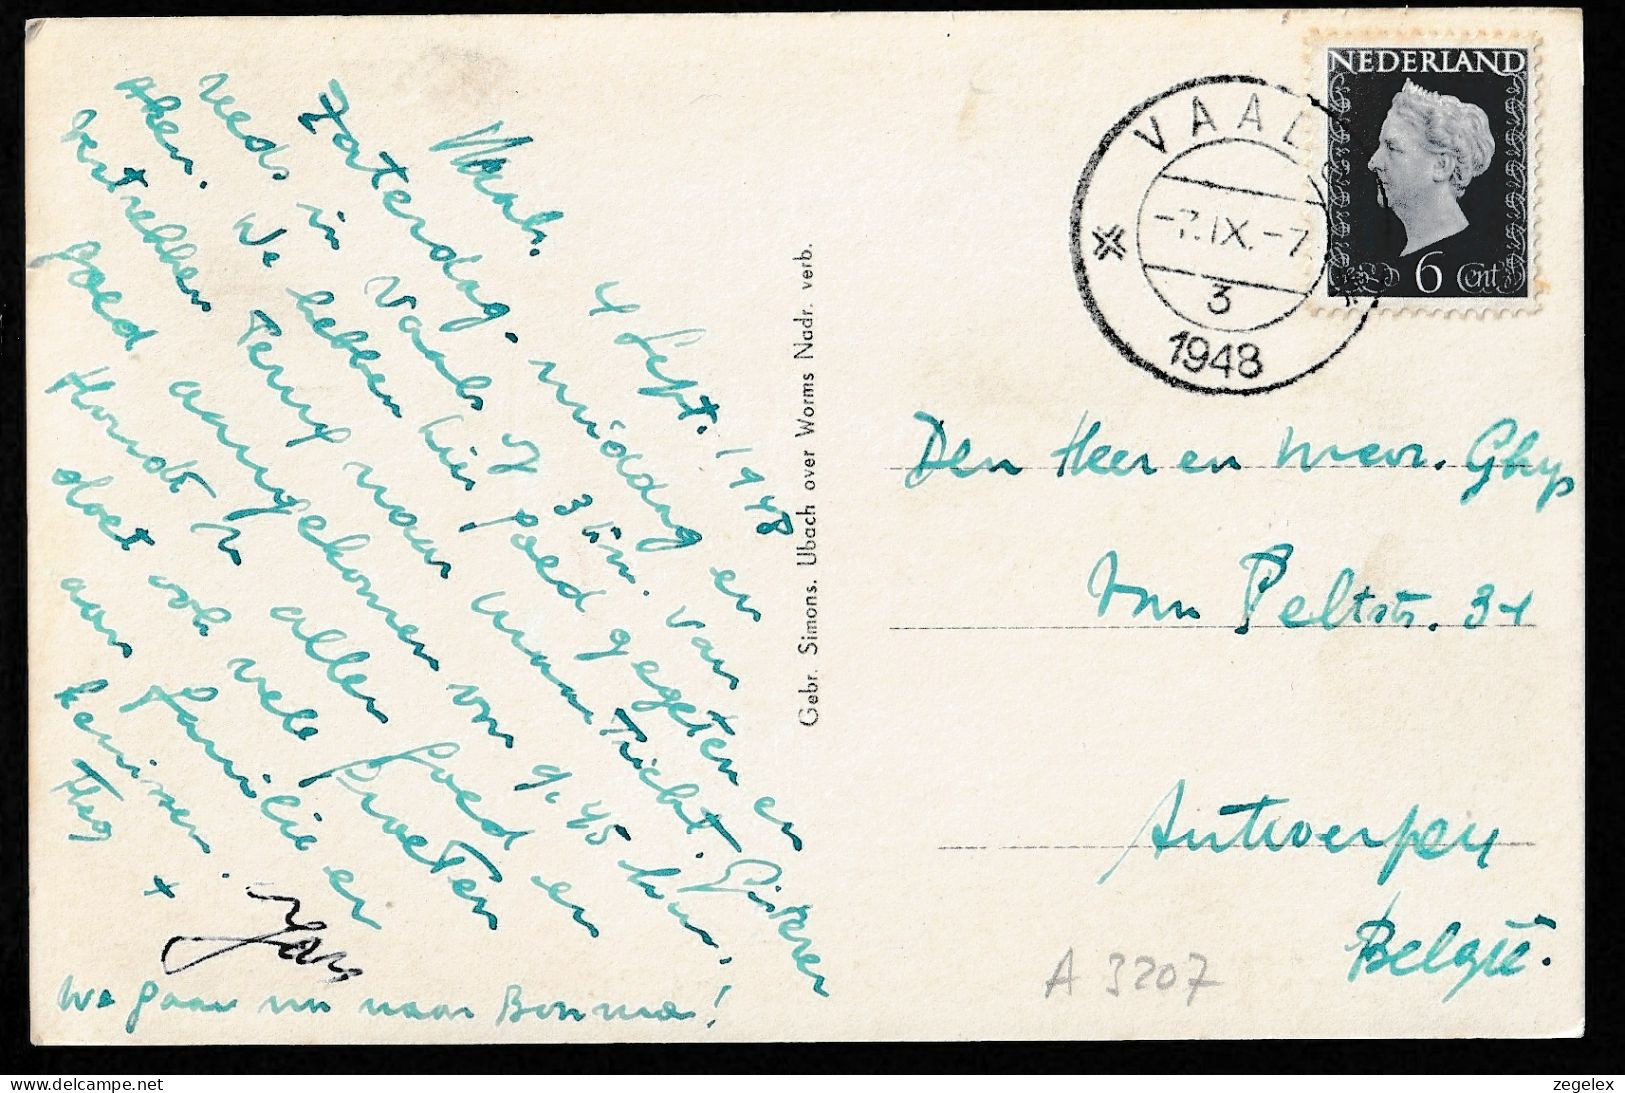 Vaals. 4 Sept. 1948
Zaterdag. middag en
reeds in Vaals 3 km. van
Aken. We hebben hier goed gegeten en
vertrekken Terug naar Maastricht. Gisteren
goed aangekomen om 9,45 hier.
Houdt U allen goed en
doet ook vele groeten
aan familie en
kennissen.
Jan
We gaan nu naar Bonma!
Gebr. Simons. Ubach over Worms Nadr. verb.
NEDERLAND
6 Cent
VAALS
-7.IX.-7
3
1948
Den Heer en Mevr. Ghys
Van Peltstr. 34
Antwerpen
België.
A 3207
www.delcampe.net
zegelex